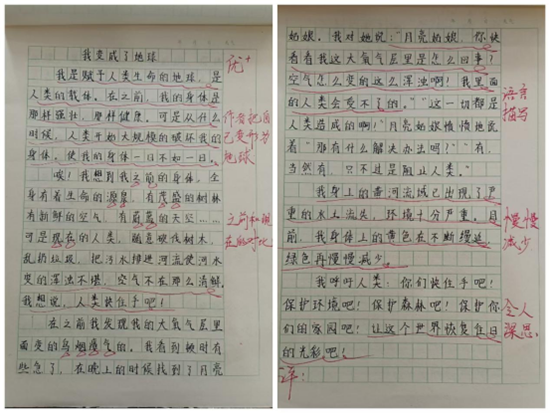 我变成了地球
优+
我是赋予人类生命的地球，是
人类的载体。在之前，我的身体是
那样强壮，那样健康。可是从什么
时候，人类开始大规模的破坏我的
身体，使我的身体一日不如一日。
作者把自
己变形为
地球
唉！我想到我之前的身体，全
身有着生命的源泉，有茂盛的树林
有新鲜的空气，有蔚蓝的天空……
可是现在的人类，随意砍伐树木，
乱扔垃圾，把污水排进河流使河水
变的浑浊不堪，空气不在那么清新，
我想说，人类快住手吧！
之前和现
在的对比
在之前我发现我的大气层里
面变的乌烟瘴气的，我看到顿时有
些急了，在晚上的时候找到了月亮
奶奶，我对她说：“月亮奶奶，你快
看看我这大气层里是怎么回事？
空气怎么变的这么浑浊啊！我里面
的人类会受不了的。”“这一切都是
人类造成的啊！”月亮奶奶愤愤地说
着“那有什么解决办法吗？”“有，
当然有，只不过是阻止人类。”
语言
描写
我身上的黄河流域已出现了严
重的水土流失，环境十分严重。目
前，我身体上的黄色在不断蔓延，
绿色再慢慢减少。
慢慢
减少
我呼吁人类：你们快住手吧！
保护环境吧！保护森林吧！保护你
们的家园吧！让这个世界恢复往日
的光彩吧！
令人
深思
评：